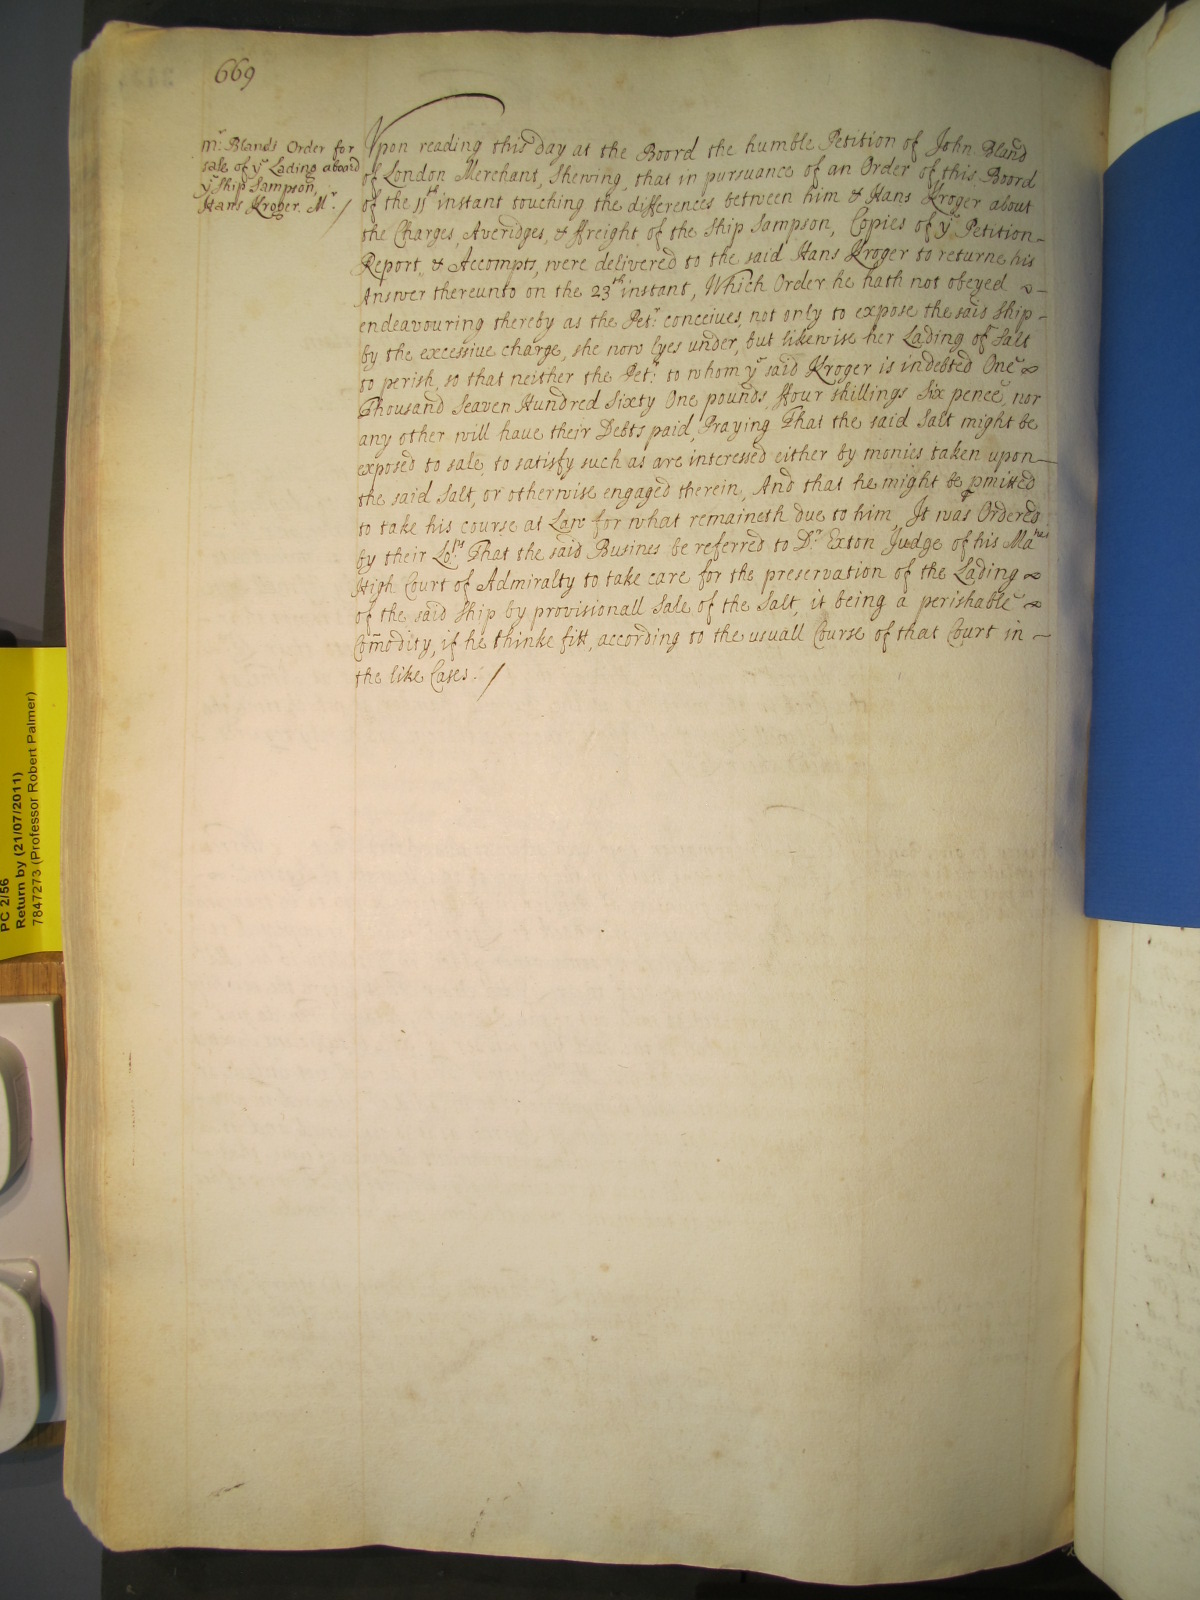 669
Mr. Blands Order for
sale of ye Lading aboard
ye Ship Sampson,
Hans Kroger. Mr. /
Vpon reading this day at the Boord the humble Petition of John Bland
of London Merchant, Shewing, that in pursuance of an Order of this Boord
of the 11th instant touching the differences between him & Hans Kroger about
the Charges, Averidges, & ffreight of the Ship Sampson, Copies of ye Petition
Report, & Accompts, were delivered to the said Hans Kroger to returne his
Answer thereunto on the 23th instant, Which Order he hath not obeyed
endeavouring thereby as the Petr: conceives, not only to expose the said Ship
by the excessive charge, she now lyes under, but likewise her Lading of Salt
to perish, so that neither the Petr: to whom ye said Kroger is indebted One
Thousand Seaven Hundred Sixty One pounds, ffour shillings Six pence, nor
any other will haue their Debts paid, Praying That the said Salt might be
exposed to sale, to satisfy such as are interessed either by monies taken upon
the said Salt, or otherwise engaged therein, And that he might be pmitted
to take his course at Law for what remaineth due to him, It was Ordered
by their Lops. That the said Busines be referred to Dr. Exton Judge of his Mates
High Court of Admiralty to take care for the preservation of the Lading
of the said Ship by provisionall Sale of the Salt, it being a perishable
Com̃odity, if he thinke fitt, according to the usuall Course of that Court in
the like Cases. /
PC 2/56
Return by (21/07/2011)
7847273 (Professor Robert Palmer)